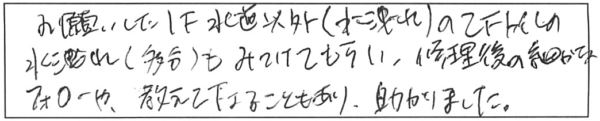 お願いした1F水道以外(水漏れ)の2Fトイレの
水漏れ(多分)もみつけてもらい、修理後の細かな
フォローや、教えて下さることもあり、助かりました。